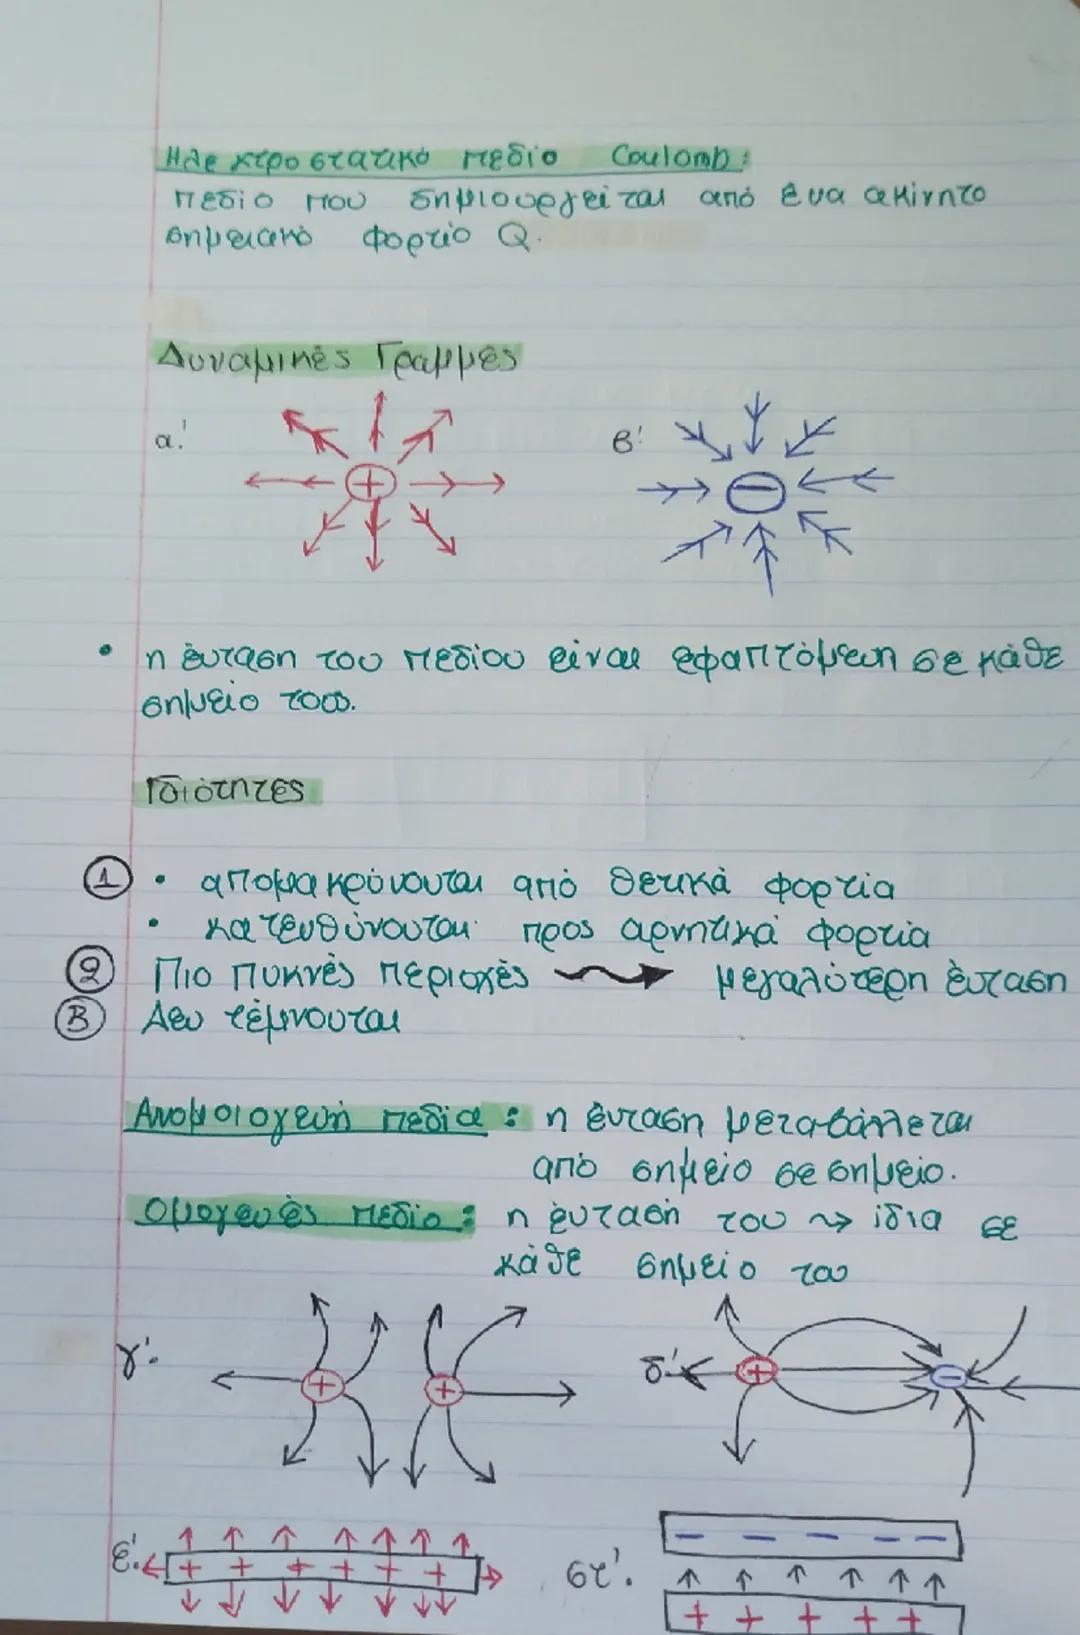 Ηλεκτροστατικό πεδίο Coulomb:
πεδίο που δημιουργείται από ένα ακίνητο
σημειακό φορτίο Q.
Δυναμικές Γραμμές
α'.
+
β'.
−
• η ένταση του πεδίου είναι εφαπτόμενη σε κάθε
σημείο τους.
Ιδιότητες
① • απομακρύνονται από θετικά φορτία
• κατευθύνονται προς αρνητικά φορτία
② Πιο πυκνές περιοχές → μεγαλύτερη ένταση
③ Δεν τέμνονται
Ανομοιογενή πεδία: η ένταση μεταβάλλεται
από σημείο σε σημείο.
Ομογενές πεδίο: η ένταση του → ίδια σε
κάθε σημείο του
γ'.
+ +
δ'.
+ −
ε'.
+ + + + + +
στ'.
− − − − −
+ + + + +